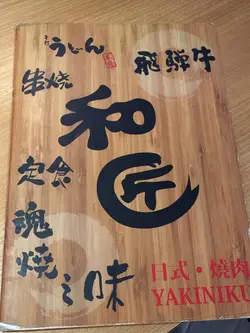 手打うどん
飛騨牛
串焼
和匠
定食
魂
焼之味
日式・燒肉
YAKINIKU